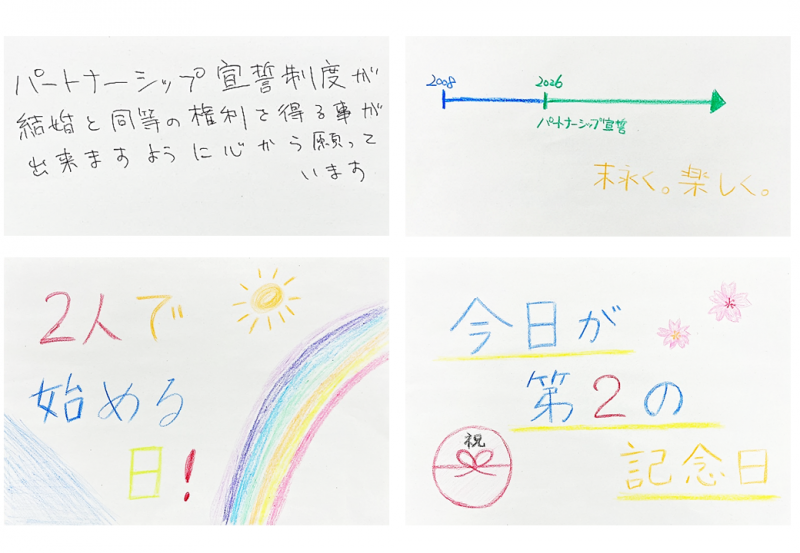 パートナーシップ宣誓制度が
結婚と同等の権利を得る事が
出来ますように心から願って
います
2008
2026
パートナーシップ宣誓
末永く。楽しく。
2人で
始める
日!
今日が
第2の
記念日
祝